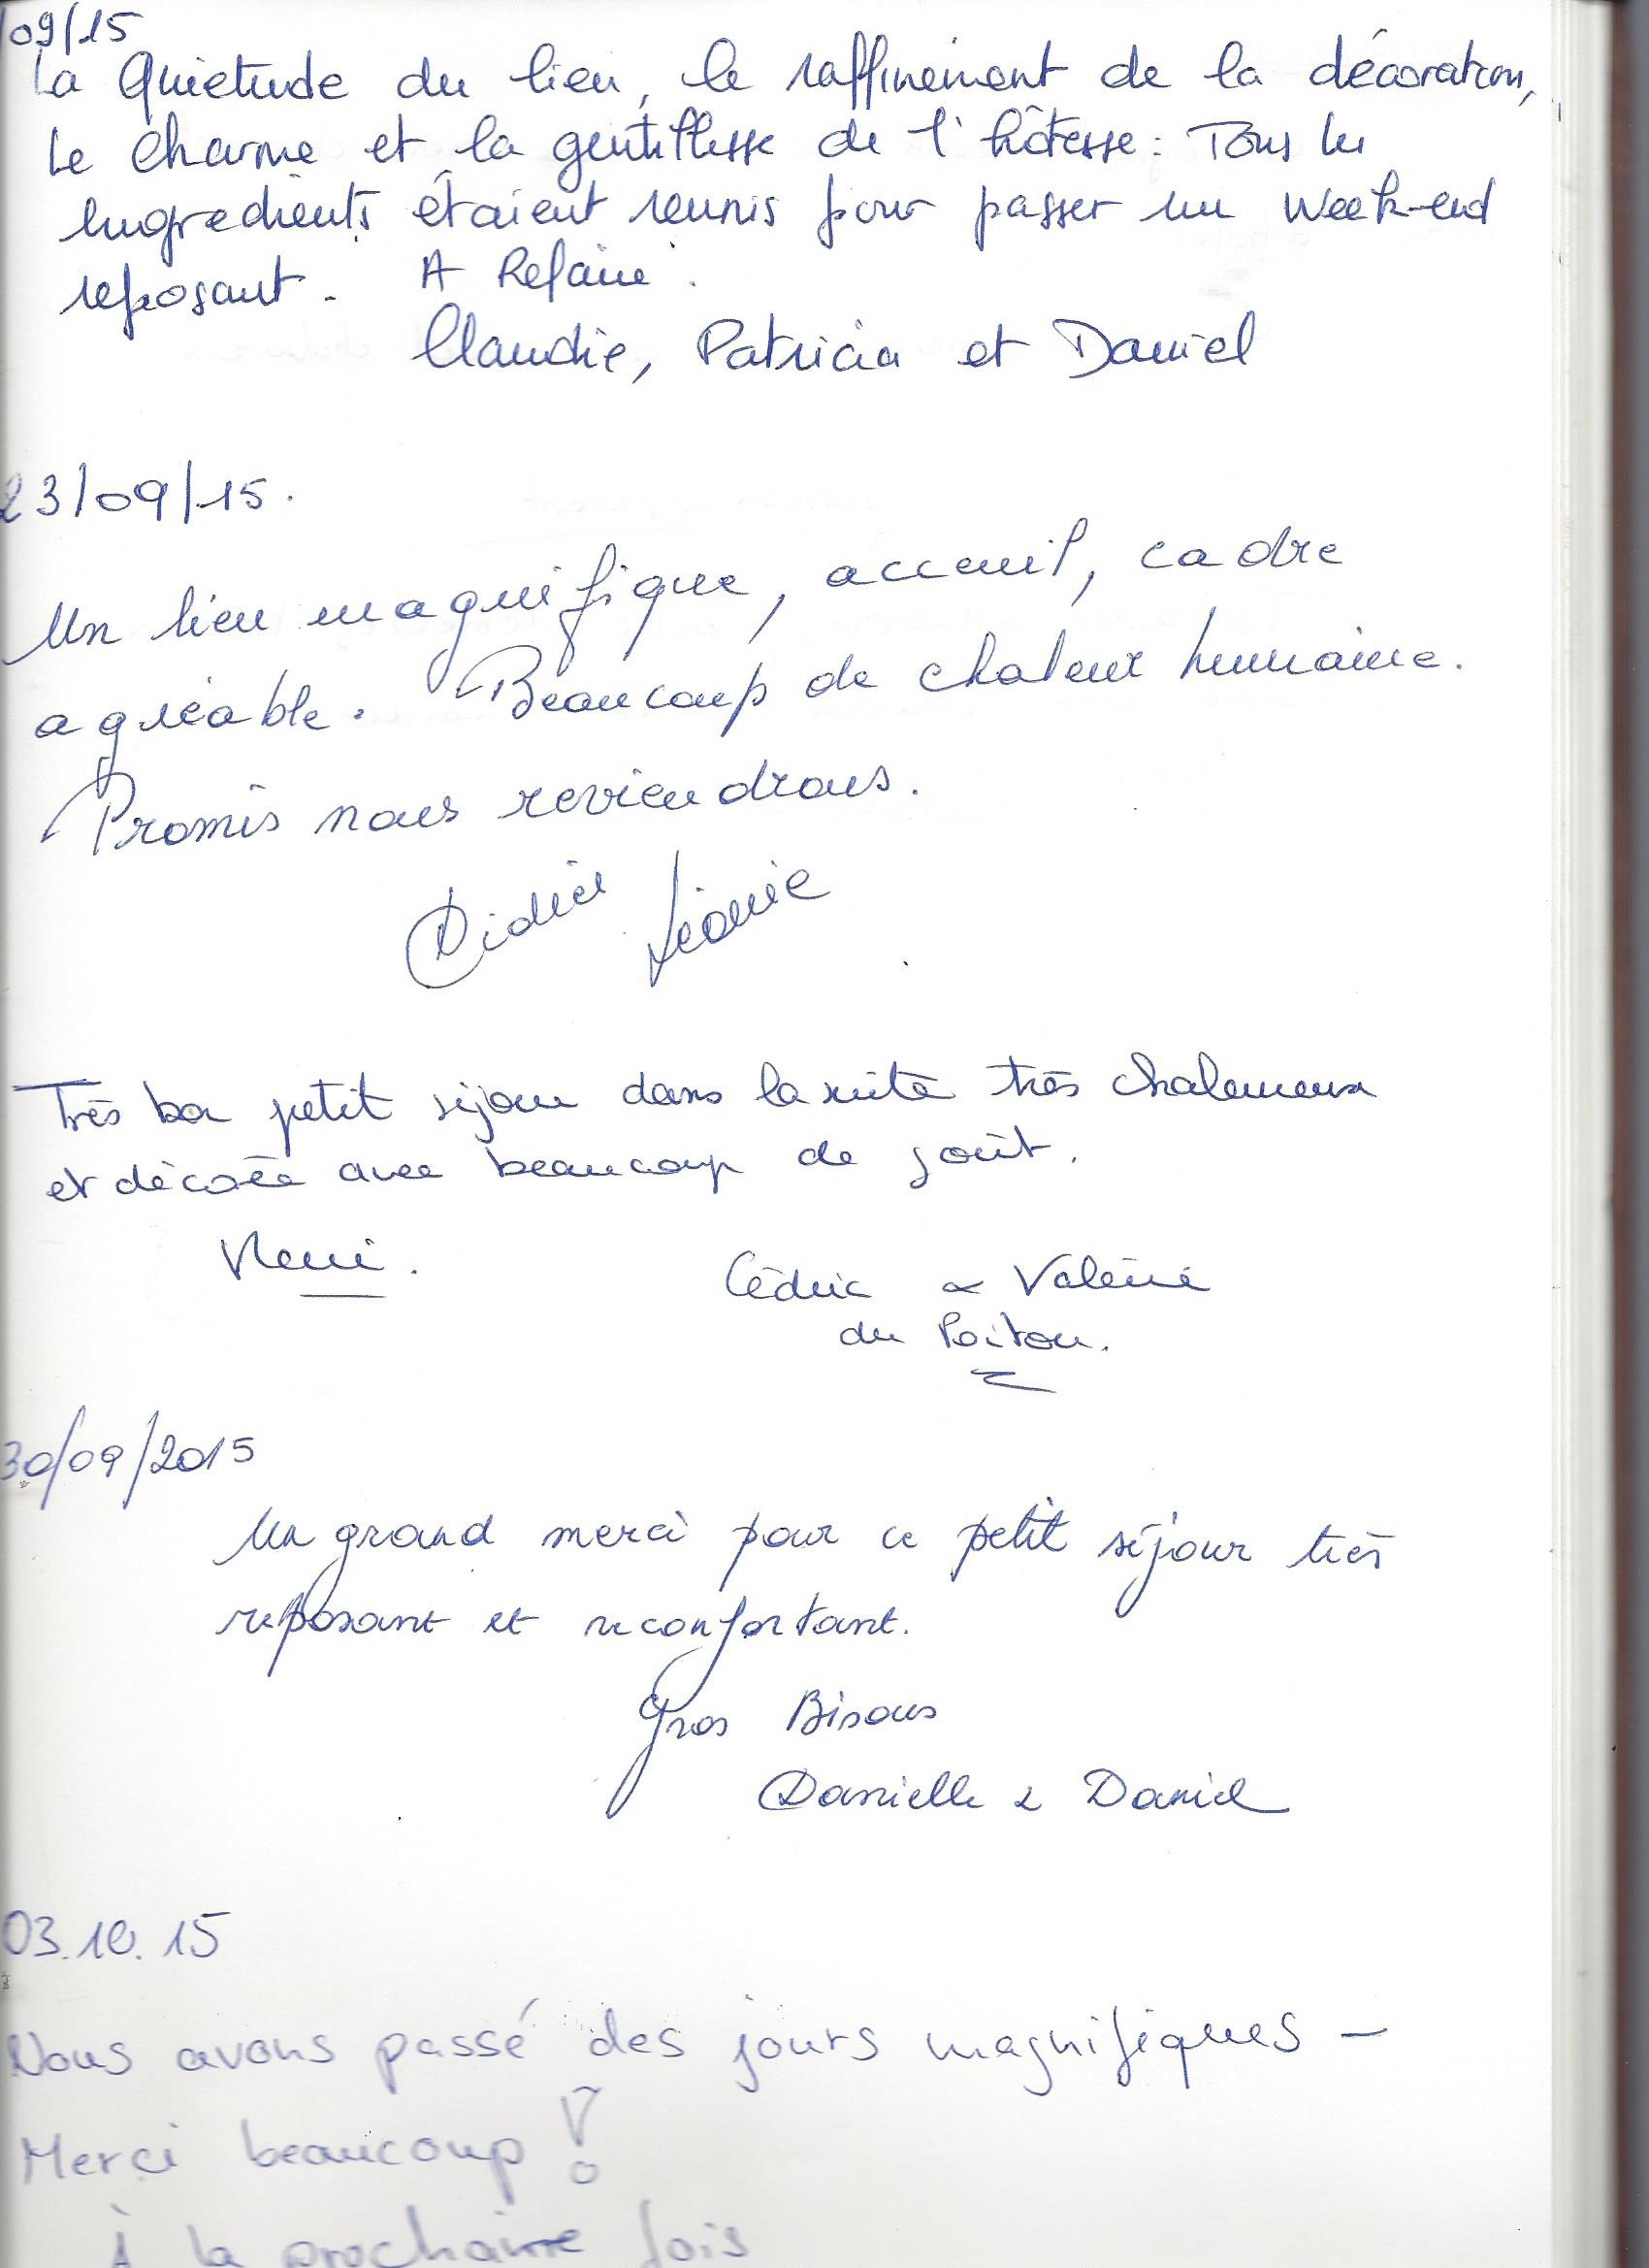 /09/15
La Quietude du lieu, le raffinement de la décoration,
Le charme et la gentillesse de l'hôtesse : Tous les
Ingredients étaient reunis pour passer un week-end
reposant. A Refaire.
Claudie, Patricia et Daniel
23/09/15.
Un lieu magnifique, acceuil, cadre
agréable. Beaucoup de chaleur humaine.
Promis nous reviendrons.
Didier Léonie
Très bon petit séjour dans la suite très chaleureux
et décorée avec beaucoup de goût.
Merci.
Cédric & Valérie
du Poitou.
30/09/2015
Un grand merci pour ce petit séjour très
reposant et reconfortant.
Gros Bisous
Danielle & Daniel
03.10.15
Nous avons passé des jours magnifiques -
Merci beaucoup !
À la prochaine fois